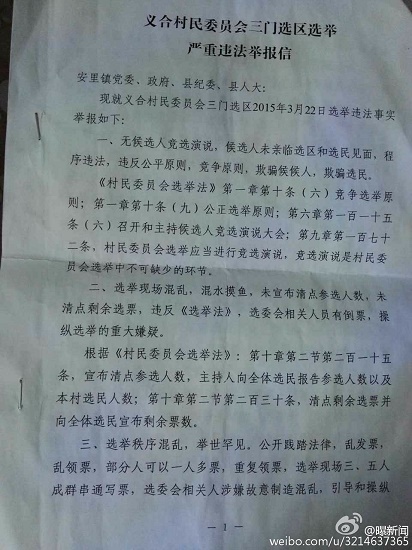 义合村民委员会三门选区选举
严重违法举报信
安里镇党委、政府、县纪委、县人大：
现就义合村民委员会三门选区2015年3月22日选举违法事实
举报如下：
一、无侯选人竞选演说，侯选人未亲临选区和选民见面，程
序违法，违反公平原则，竞争原则，欺骗侯侯人，欺骗选民。
《村民委员会选举法》第一章第十条（六）竞争选举原
则；第一章第十条（九）公正选举原则；第六章第一百一十五
条（六）召开和主持侯选人竞选演说大会；第九章第一百七十
二条，村民委员会选举应当进行竞选演说，竞选演说是村民委
员会选举中不可缺少的环节。
二、选举现场混乱，混水摸鱼，未宣布清点参选人数，未
清点剩余选票，违反《选举法》，选委会相关人员有倒票，操
纵选举的重大嫌疑。
根据《村民委员会选举法》：第十章第二节第二百一十五
条，宣布清点参选人数，主持人向全体选民报告参选人数以及
本村选民人数；第十章第二节第二百三十条，清点剩余选票并
向全体选民宣布剩余票数。
三、选举秩序混乱，举世罕见。公开践踏法律，乱发票，
乱领票，部分人可以一人多票，重复领票，选举现场三、五人
成群串通写票，选委会相关人涉嫌故意制造混乱，引导和操纵
— 1 —
@曝新闻
weibo.com/u/3214637365